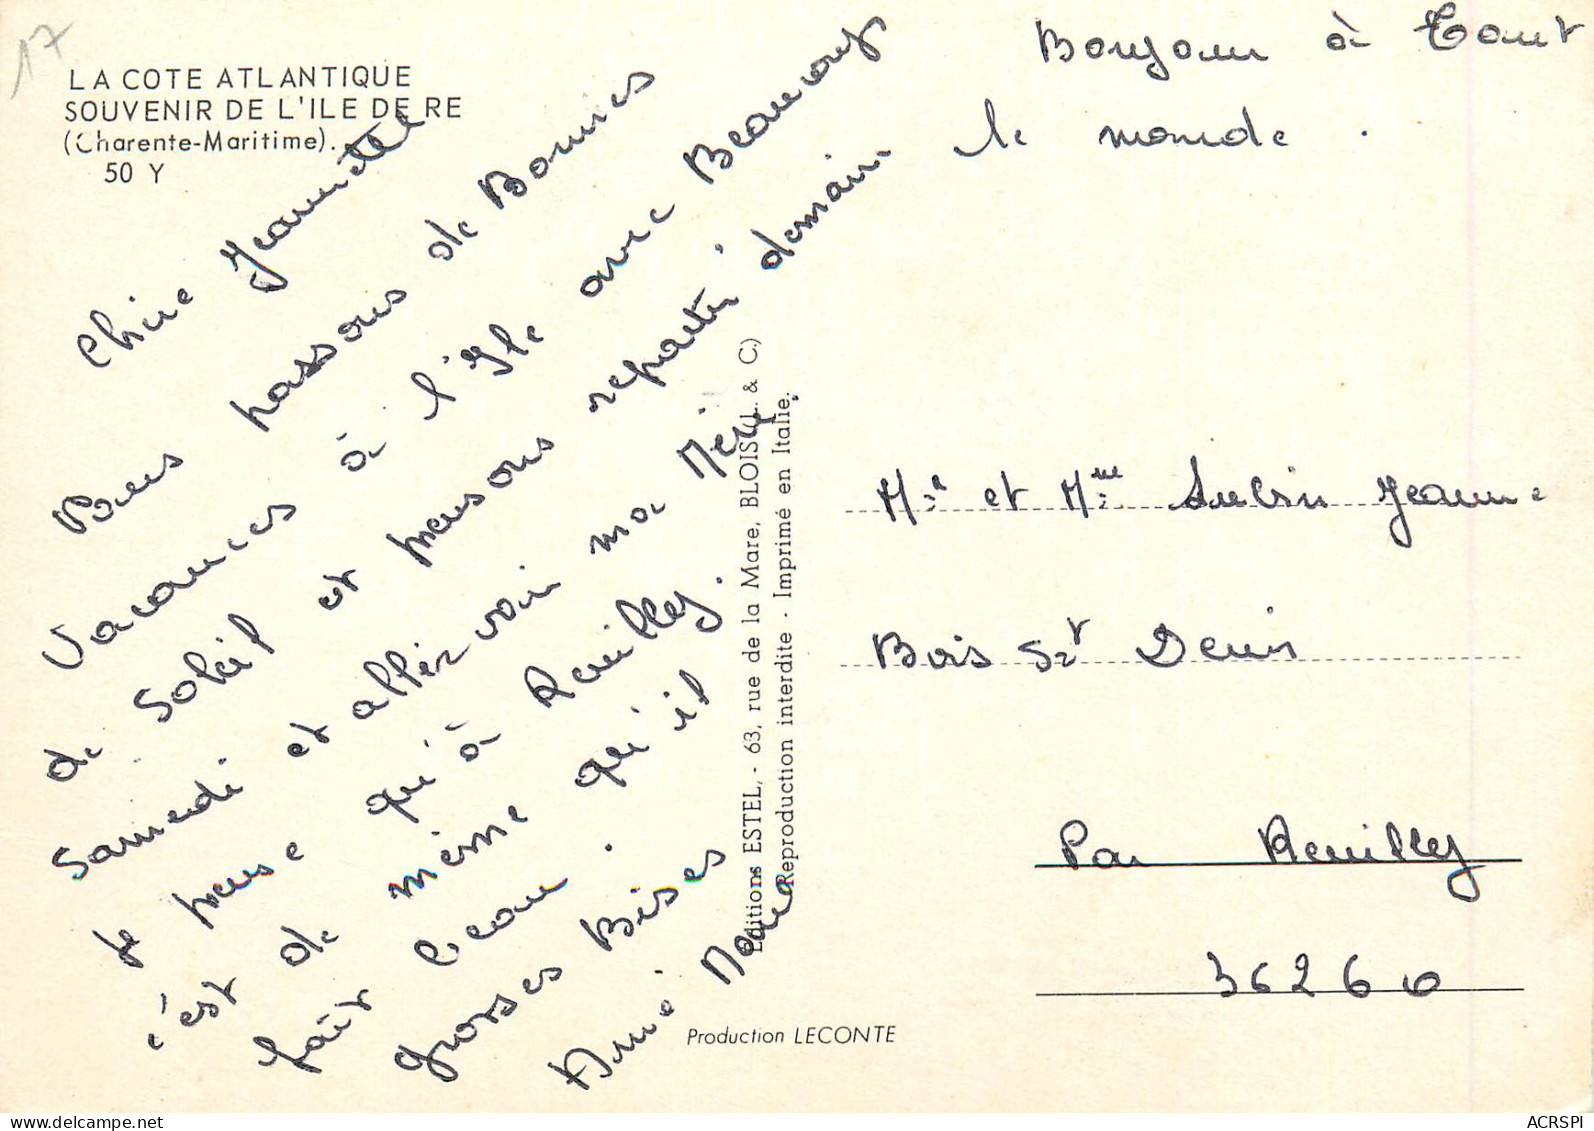 17
LA COTE ATLANTIQUE
SOUVENIR DE L'ILE DE RE
(Charente-Maritime).
50 Y
Chère Jeannette
Nous passons de Bonnes
Vacances à l'Ile avec Beaucoup
de Soleil et nous repartir demain
Samedi et aller voir ma Mère.
Je pense qu'à Reuilly.
c'est de même qu'il
fait beau.
grosses Bises
Aimé Marie
Bonjour à Tout
le monde.
Editions ESTEL, - 63, rue de la Mare, BLOIS (L. & C.)
Reproduction interdite - Imprimé en Italie.
Mr et Mme Aubin Jeanne
Bois St Denis
Par Reuilly
36260
Production LECONTE
ACRSPI